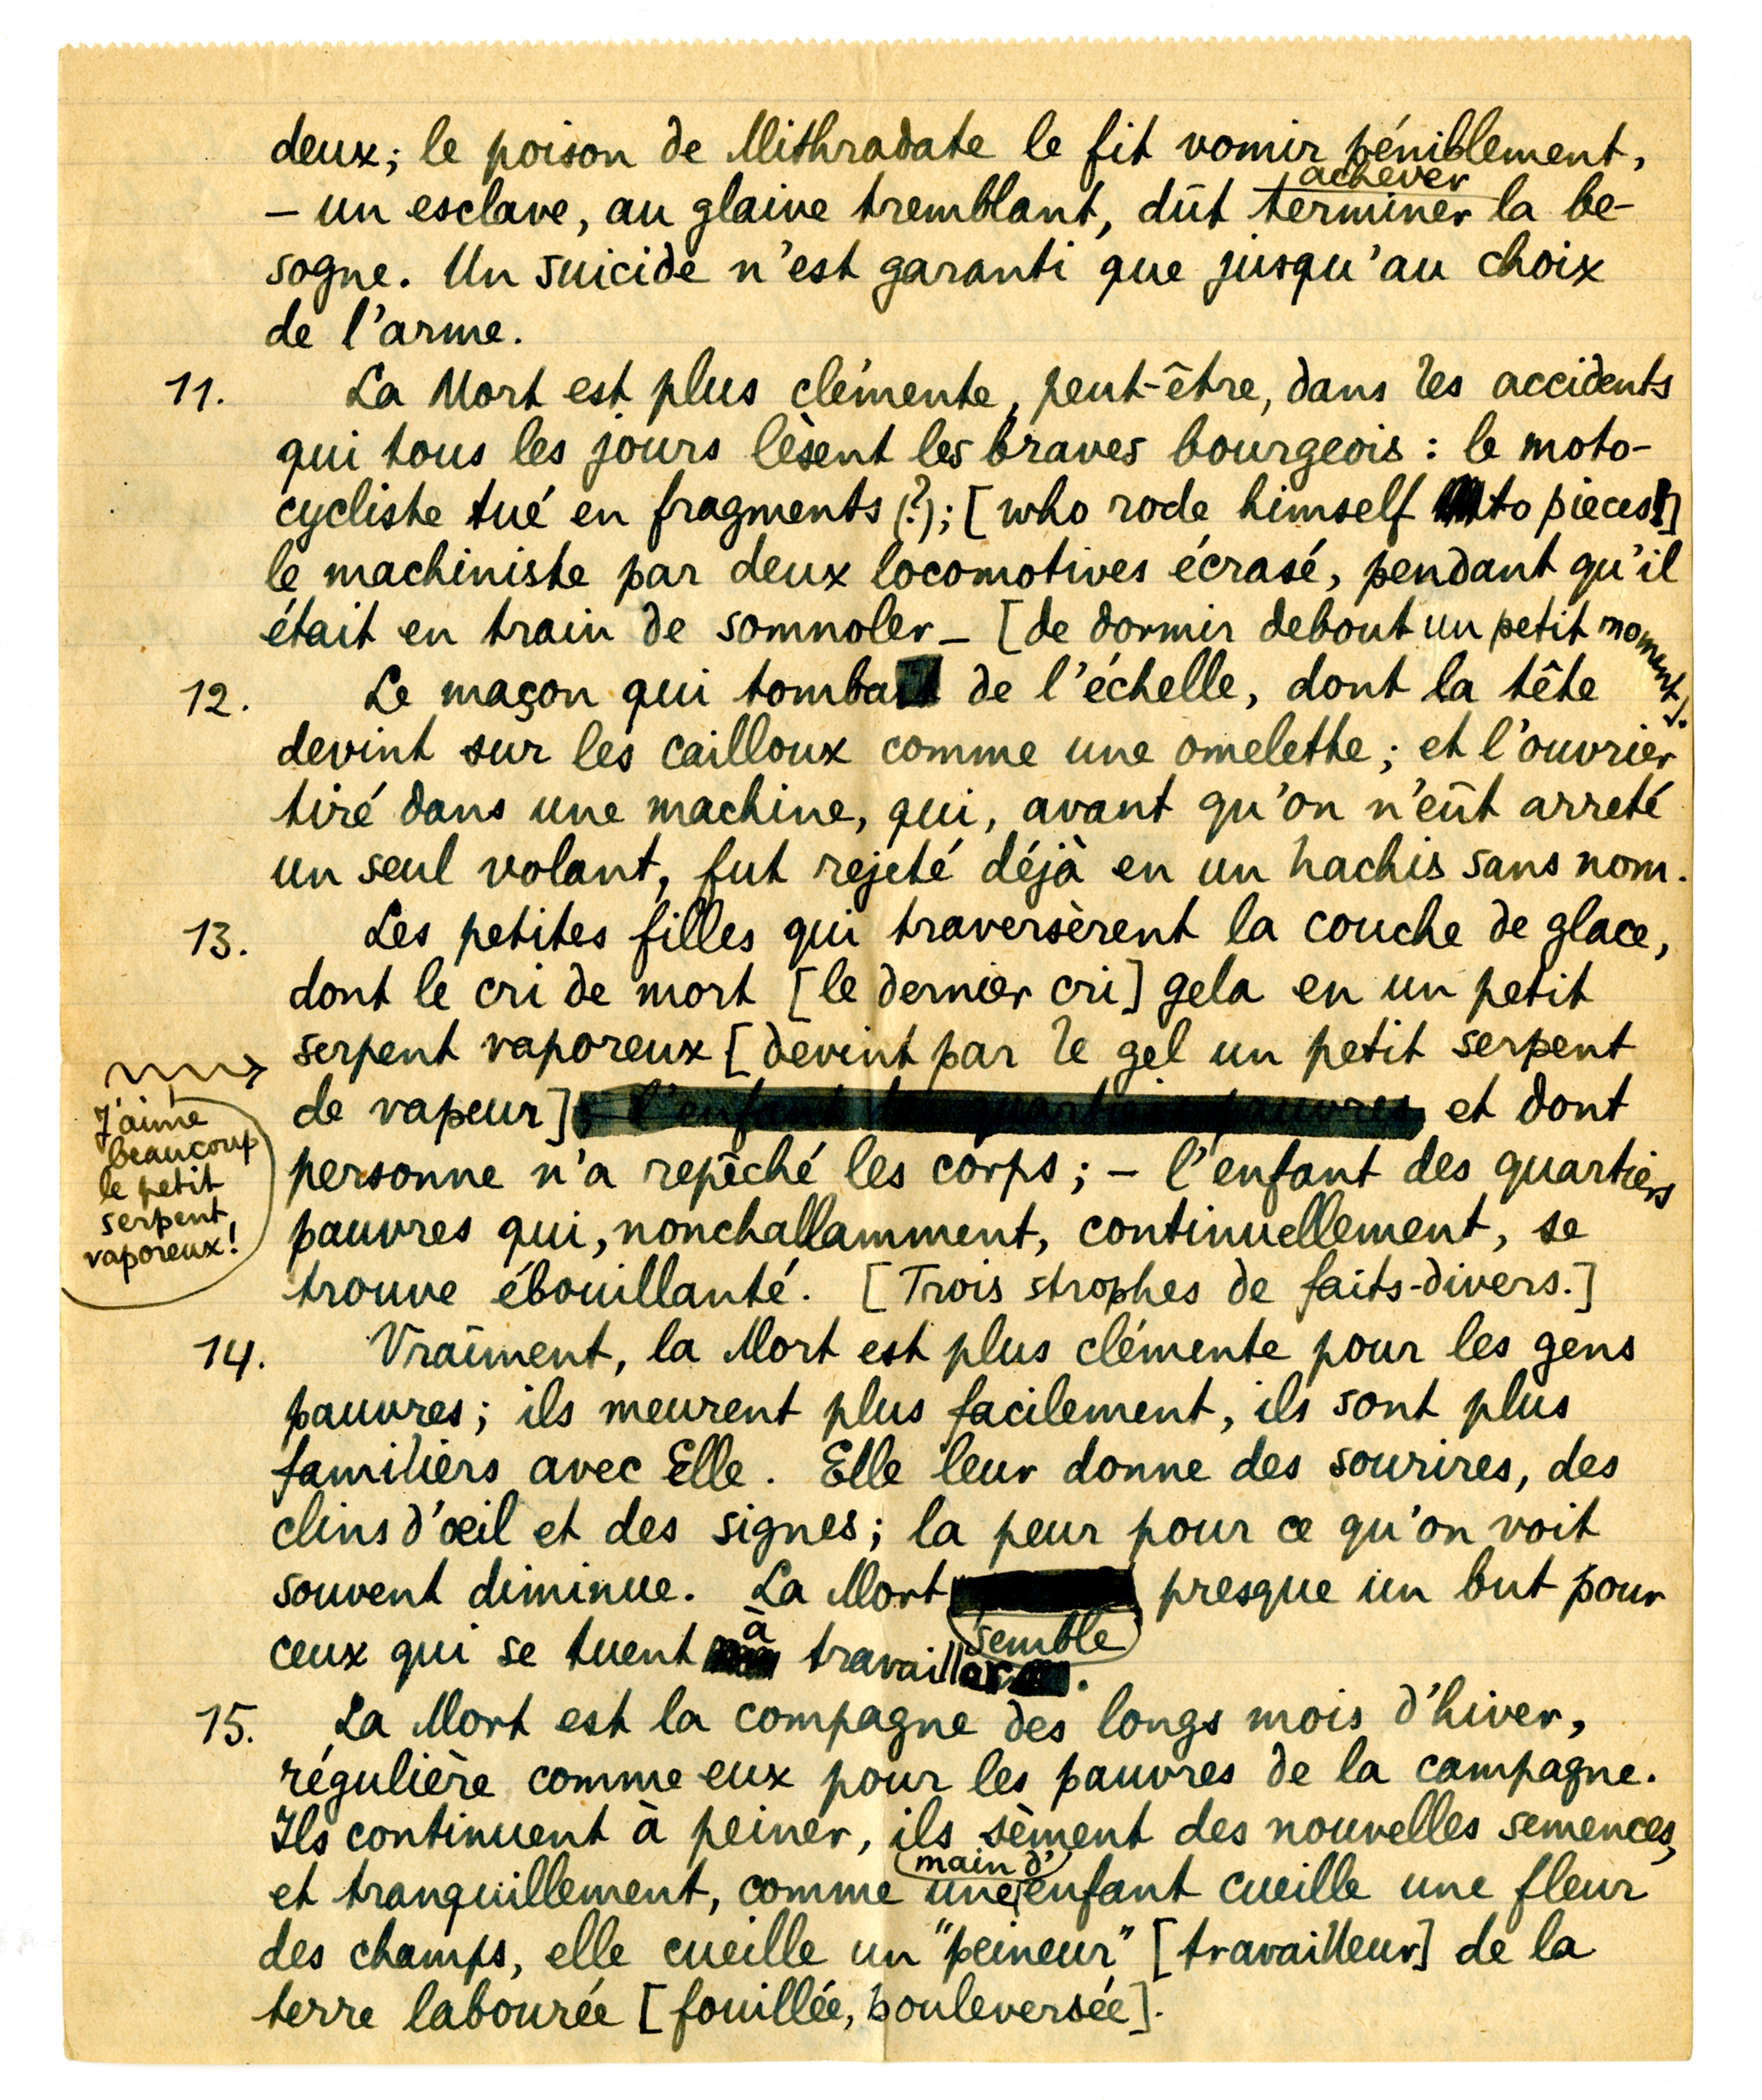 deux; le poison de Mithradate le fit vomir péniblement,
achever
– un esclave, au glaive tremblant, dût terminer la be-
sogne. Un suicide n'est garanti que jusqu'au choix
de l'arme.
11. La Mort est plus clémente, peut-être, dans les accidents
qui tous les jours lèsent les braves bourgeois : le moto-
cycliste tué en fragments (?); [who rode himself to pieces]
le machiniste par deux locomotives écrasé, pendant qu'il
était en train de somnoler – [de dormir debout un petit moment].
12. Le maçon qui tomba de l'échelle, dont la tête
devint sur les cailloux comme une omelette; et l'ouvrier
tiré dans une machine, qui, avant qu'on n'eût arreté
un seul volant, fut rejeté déjà en un hachis sans nom.
13. Les petites filles qui traversèrent la couche de glace,
dont le cri de mort [le dernier cri] gela en un petit
serpent vaporeux [devint par le gel un petit serpent
de vapeur] ; l'enfant des quartiers pauvres et dont
personne n'a repêché les corps; – l'enfant des quartiers
pauvres qui, nonchallamment, continuellement, se
trouve ébouillanté. [Trois strophes de faits-divers.]
J'aime
beaucoup
le petit
serpent
vaporeux!
14. Vraîment, la Mort est plus clémente pour les gens
pauvres; ils meurent plus facilement, ils sont plus
familiers avec Elle. Elle leur donne des sourires, des
clins d'œil et des signes; la peur pour ce qu'on voit
souvent diminue. La Mort semble presque un but pour
ceux qui se tuent à travailler.
15. La Mort est la compagne des longs mois d'hiver,
régulière comme eux pour les pauvres de la campagne.
Ils continuent à peiner, ils sèment des nouvelles semences,
main d'
et tranquillement, comme une enfant cueille une fleur
des champs, elle cueille un "peineur" [travailleur] de la
terre labourée [fouillée, bouleversée].